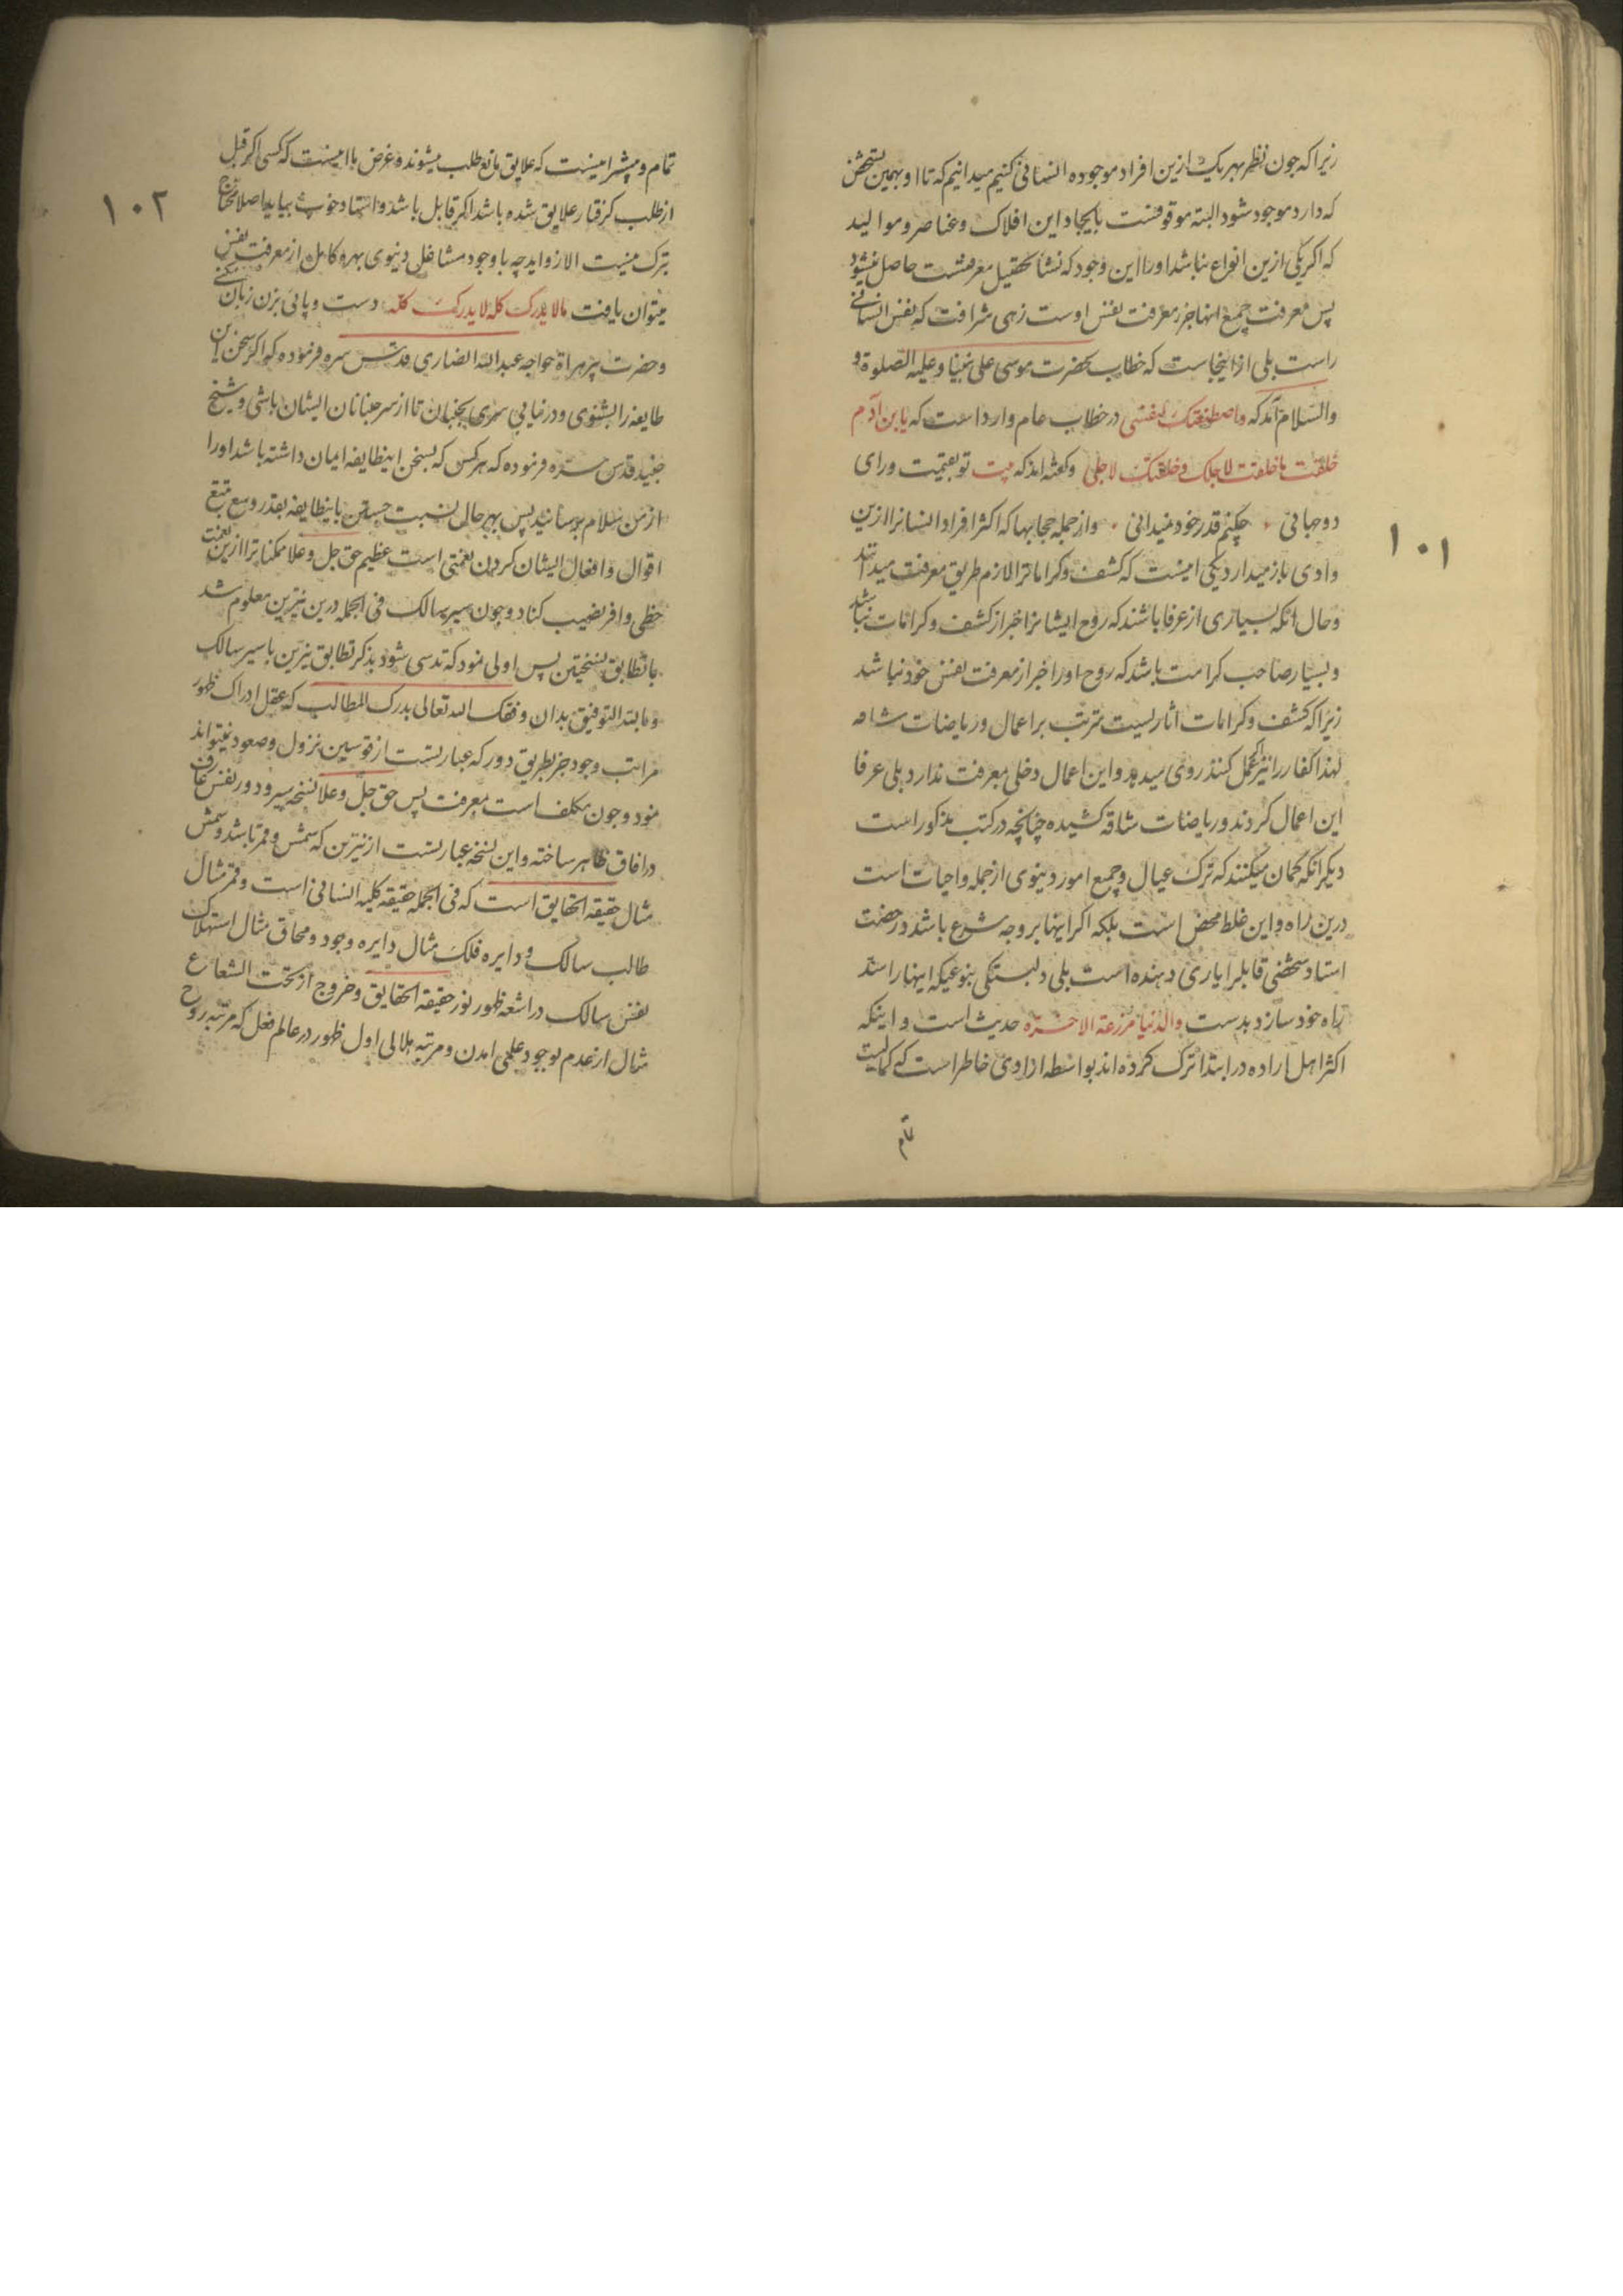 زیرا که چون نظر بهر یک ازین افراد موجوده انسانی کنیم میدانیم که تا او بهمین تشخص
که دارد موجود شود البته موقوفست بایجاد این افلاک و عناصر و موالید
که اگر یکی ازین انواع نباشد او را این وجود که نشأ تحصیل معرفتست حاصل نمیشود
پس معرفت جمیع انها جزء معرفت نفس اوست زهی شرافت که نفس انسانی
راست بلی از اینجاست که خطاب بحضرت موسی علی نبینا و علیه الصلوة و
والسلام آمد که واصطنعتک لنفسی در خطاب عام وارد است که یا بن آدم
خلقت ما خلقت لاجلک و خلقتک لاجلی و گفته اند که بیت تو بقیمت ورای
دو جهانی چکنم قدر خود نمیدانی و از جمله حجابها که اکثر افراد انسانرا ازین
وادی باز میدارد یکی اینست که کشف و کراماترا لازم طریق معرفت میدانند
و حال انکه بسیاری از عرفا باشند که روح ایشانرا خبر از کشف و کرامات نباشد
و بسیار صاحب کرامت باشد که روح او را خبر از معرفت نفس خود نباشد
زیرا که کشف و کرامات اثاریست مترتب بر اعمال و ریاضات شاقه
لهذا کفار را نیز اگر عمل کنند روی میدهد و این اعمال دخلی بمعرفت ندارد بلی عرفا
این اعمال کردند و ریاضات شاقه کشیده چنانچه در کتب مذکور است
دیگر انکه گمان میکنند که ترک عیال و جمیع امور دنیوی از جمله واجبات است
درین راه و این غلط محض است بلکه اگر اینها بر وجه شرع باشد در خدمت
استاد شخصی قابلرا یاری دهنده است بلی دلبستگی بنوعیکه اینها را سد
راه خود سازد بدست والدنیا مزرعة الاخرة حدیث است و اینکه
اکثر اهل اراده در ابتدا ترک کرده اند بواسطه ازادی خاطر است که کمالیست
تمام
۱۰۱
تمام و پیشتر اینست که علایق مانع طلب میشوند و غرض ما اینست که کسی اگر قبل
از طلب گرفتار علایق شده باشد اگر قابل باشد و استاد خوب بیابد اصلا محتاج
بترک نیست الا زواید چه با وجود مشاغل دنیوی بهره کامل از معرفت نفس
میتوان یافت مالا یدرک کله لا یدرک کله دست و پائی بزن زیان نکنی
و حضرت پیر هراة خواجه عبدالله انصاری قدس سره فرموده که اگر سخن این
طایفه را بشنوی و در نیابی سری بجنبان تا از سر جنبانان ایشان باشی و شیخ
جنید قدس سره فرموده که هر کس که بسخن اینطایفه ایمان داشته باشد او را
از من سلام برسانید پس بهر حال نسبت جستن باینطایفه بقدر وسع تتبع
اقوال و افعال ایشان کردن نعمتی است عظیم حق جل و علا ممکنانرا ازین نعمت
حظی وافر نصیب کناد و چون سیر سالک فی الجمله درین نیرین معلوم شد
با تطابق نسختین پس اولی نمود که تدسی شود بذکر تطابق نیرین با سیر سالک
و بالله التوفیق بدان وفقک الله تعالی بدرک المطالب که عقل ادراک ظهور
مراتب وجود جز بطریق دور که عبارتست از قوسین نزول و صعود نمیتواند
نمود و چون مکلف است بمعرفت پس حق جل و علا نسخه سیر و دور نفس عارف
در افاق ظاهر ساخته و این نسخه عبارتست از نیرین که شمس و قمر باشد و شمس
مثال حقیقة الحقایق است که فی الجمله حقیقه کلیه انسانی است و قمر مثال
طالب سالک و دایره فلک مثال دایره وجود و محاق مثال استهلاک
نفس سالک در اشعه ظهور نور حقیقة الحقایق و خروج از تحت الشعاع
مثال از عدم بوجود علمی امدن و مرتبه هلالی اول ظهور در عالم فعل که مرتبه روح
۱۰۲